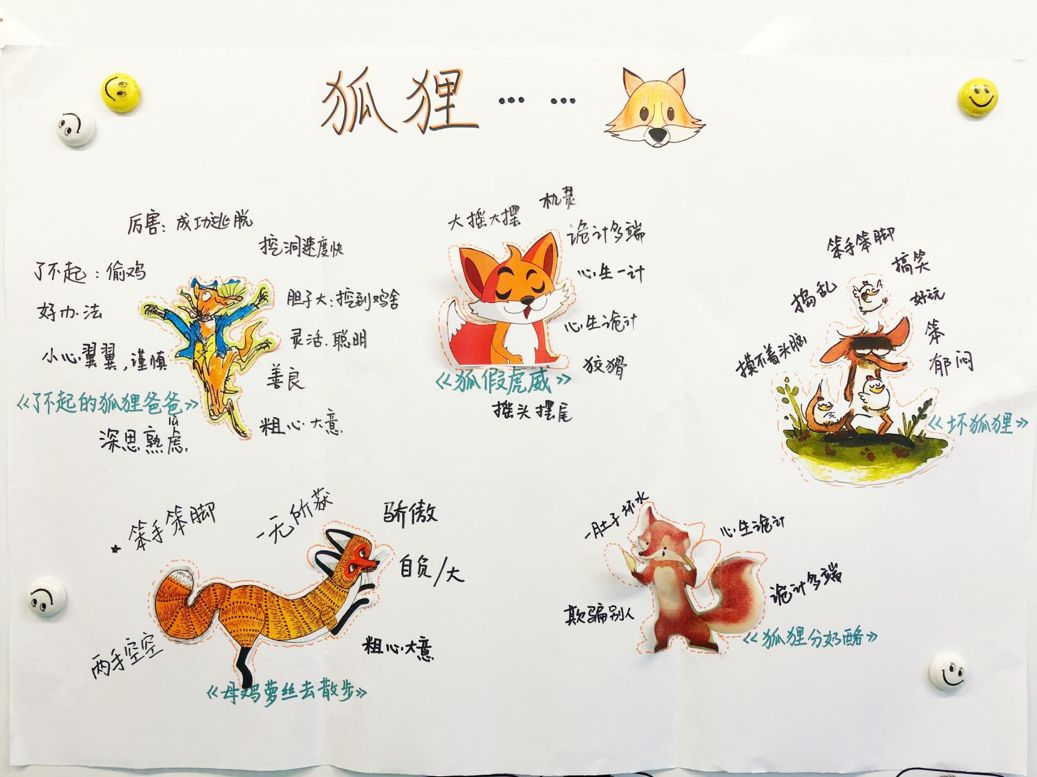 狐狸……
厉害：成功逃脱
挖洞速度快
了不起：偷鸡
胆子大：挖到鸡舍
好办法
灵活、聪明
小心翼翼，谨慎
善良
《了不起的狐狸爸爸》
粗心大意
深思熟虑
大摇大摆
机灵
诡计多端
心生一计
心生诡计
狡猾
《狐假虎威》
摇头摆尾
笨手笨脚
搞笑
捣乱
好玩
笨
摸不着头脑
郁闷
《坏狐狸》
笨手笨脚
一无所获
骄傲
自负/大
两手空空
粗心大意
《母鸡萝丝去散步》
一肚子坏水
心生诡计
诡计多端
欺骗别人
《狐狸分奶酪》